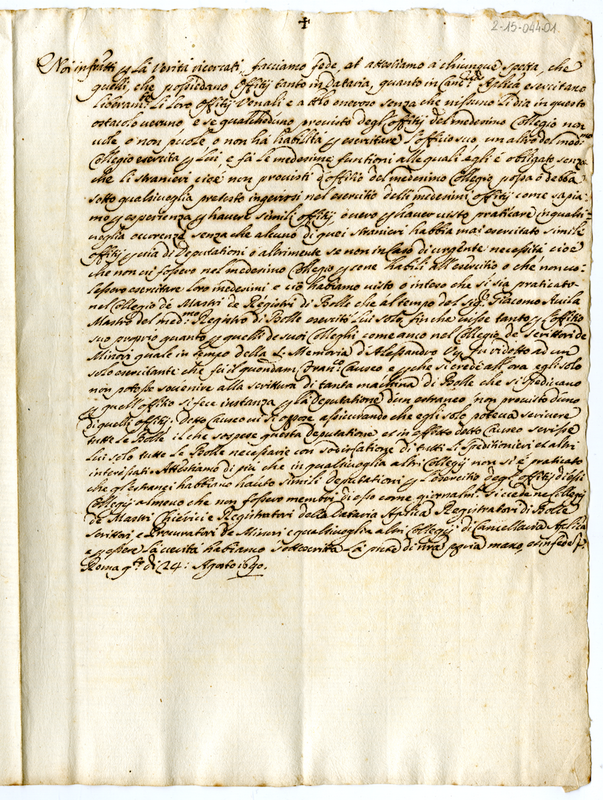 2-15-044-01
+
Noi infratti p la Verità ricercati, facciamo fede, et attestiamo à chiunque spetta, che
quelli, che possiedano Offitij tanto in Dataria, quanto in Canc.ria Aplica esercitano
liberam.te li loro offitij Venali e a tto oneroso senza che nissuno li dia in questo
ostacolo veruno, e se qualcheduno provisto degl'offitij del medesimo Collegio non
vole, o non puole, o non hà habilità p esercitare l'offitio suo, un altro del med.mo
Collegio esercita p lui, e fà le medesime funtioni alle quali egli è obligato senza
che li stranieri cioè non provisti d'offitio del medesimo Collegio possa ò debba
sotto qualsivoglia pretesto ingerirsi nel esercitio delli medesimi offitij come sapia-
mo p esperienza p havere simili offitij, ò vero p haver visto praticare in qualsi-
voglia occorenza senza che alcuno di quei stranieri habbia mai esercitato simile
offitij p via di Deputationi ò altrimente se non in Caso di urgente necessità cioè
che non vi fossero nel medesimo Collegio p sone habili all'esercitio o che non vo-
lessero esercitare loro medesimi e ciò habbiamo visto o inteso che si sia praticato
nel Collegio de Mastri de Registri di Bolle che al tempo del sig.r Giacomo Avila
Mastro del med.mo Registro di Bolle esercitò lui solo finche visse tanto p l'offitio
suo proprio quanto p quelli de suoi Colleghi come anco nel Collegio de Scrittori de
Minori, quale in tempo della fe: Memoria di Alessandro Vij fu ridotto ad un
solo esercitante che fu il quondam Fran.co Causeo e p che si credè all'ora egli solo
non potesse sovenire alla scrittura di tanta machina di Bolle che si spedicano
p quell'offitio si fece instanza p la Deputatione d'un estraneo non provisto d'uno
di quelli offitij, detto Causeo vi si oppose assicurando che egli solo poteva scrivere
tutte le Bolle il che sospese questa Deputatione et in effetto detto Causeo scrisse
lui solo tutte le Bolle necessarie con sodisfatione di tutti li speditionieri et altri
interessati. Attestiamo di più che in qualsivoglia altri Collegij non si è praticato
che gl'estranei habbino havuto simili deputationi p l'esercitio degl'Offitij di essi
Collegij almeno che non fossero membri d'esso come giornalm.te si vede ne Collegij
de Mastri Chierici e Registratori della Dataria Aplica Registratori di Bolle
Scrittori e Procuratori de Minori e qualsivoglia altri Collegij di Cancellaria Aplica
e p essere la verità habbiamo sottoscritta la pnte di nra ppria mano et in fede
Roma q.to dì 24: Agosto 1690.